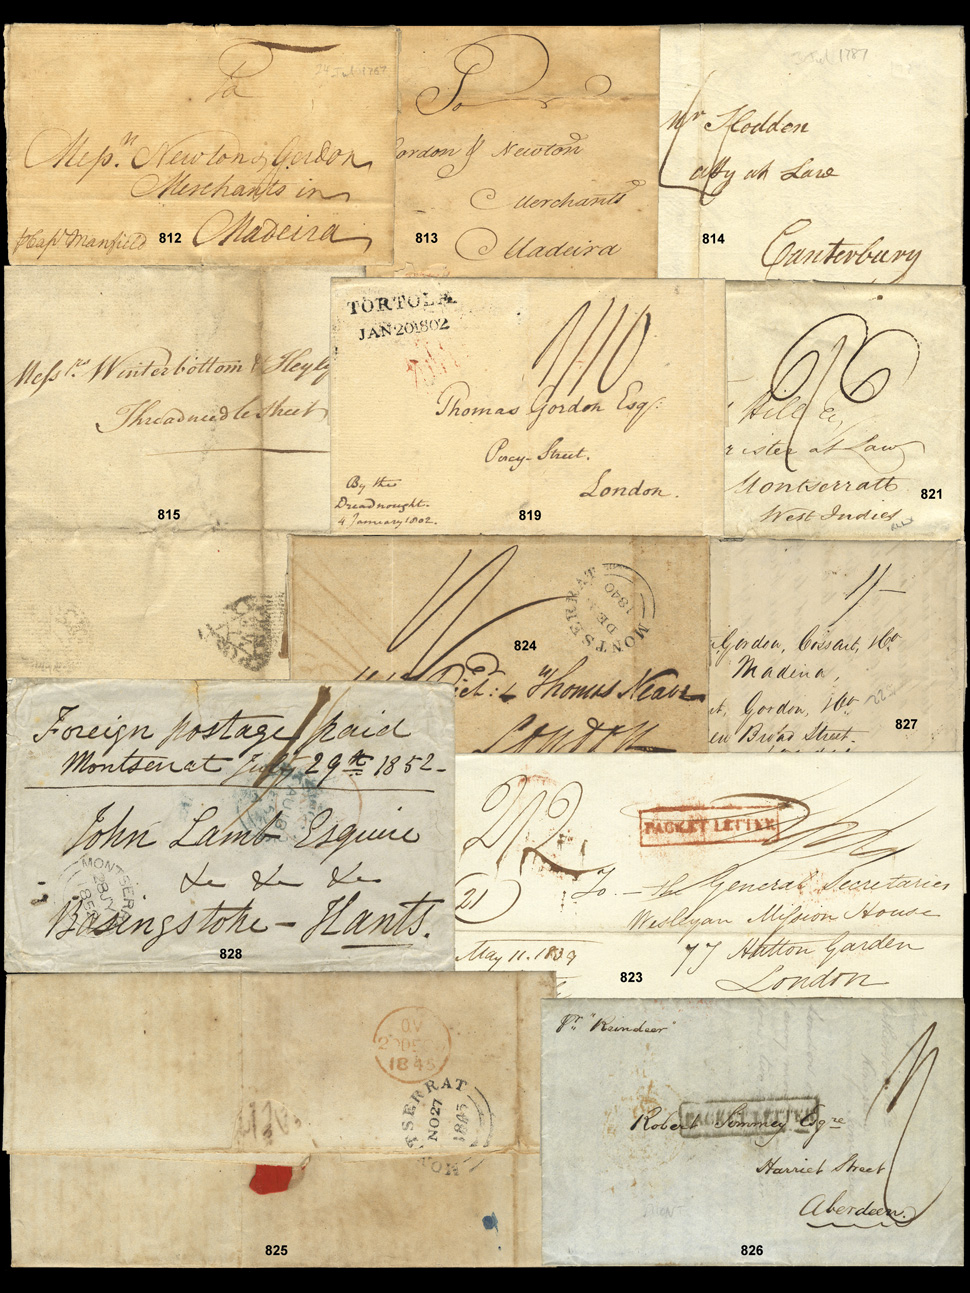 24 Jul 1787
To
Messrs Newton & Gordon
Merchants in
Madeira
812
To
Gordon & Newton
Merchants
Madeira
813
3 Jul 1787
Mr Hodden
Atty at Law
Canterbury
814
Messrs Winterbottom &
Threadneedle Street
815
TORTOLA
JAN 20 1802
1/10
Thomas Gordon Esqr.
Percy-Street.
London.
By the
Dreadnought.
4 January 1802.
819
Hill
at Law
Montserratt
West Indies
821
MONTSERRAT
DE
1840
824
Thomas Neave
London
1/-
Gordon, Cossart, & Co
Madeira,
Gordon, & Co
Broad Street.
827
Foreign postage paid
Montserrat July 29th 1852-
AUG
John Lamb Esquire
&c &c &c
MONTSERR
JY
185
Basingstoke - Hants.
828
PACKET LETTER
21
To - the General Secretaries
Wesleyan Mission House
77 Hatton Garden
London
May 11. 1839
823
20 DE
1845
MONTSERRAT
NO 27
1845
825
pr "Reindeer"
PACKET LETTER
Robert Esqre
Harriet Street
Aberdeen.
826